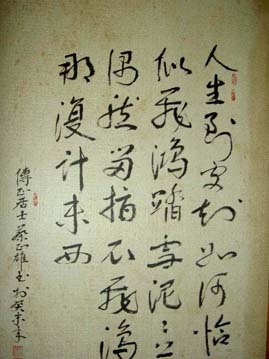 人生到處知如何恰
似飛鴻踏雪泥〻上
偶然留指爪飛鴻
那復計東西
居士蔡正雄書於癸未年